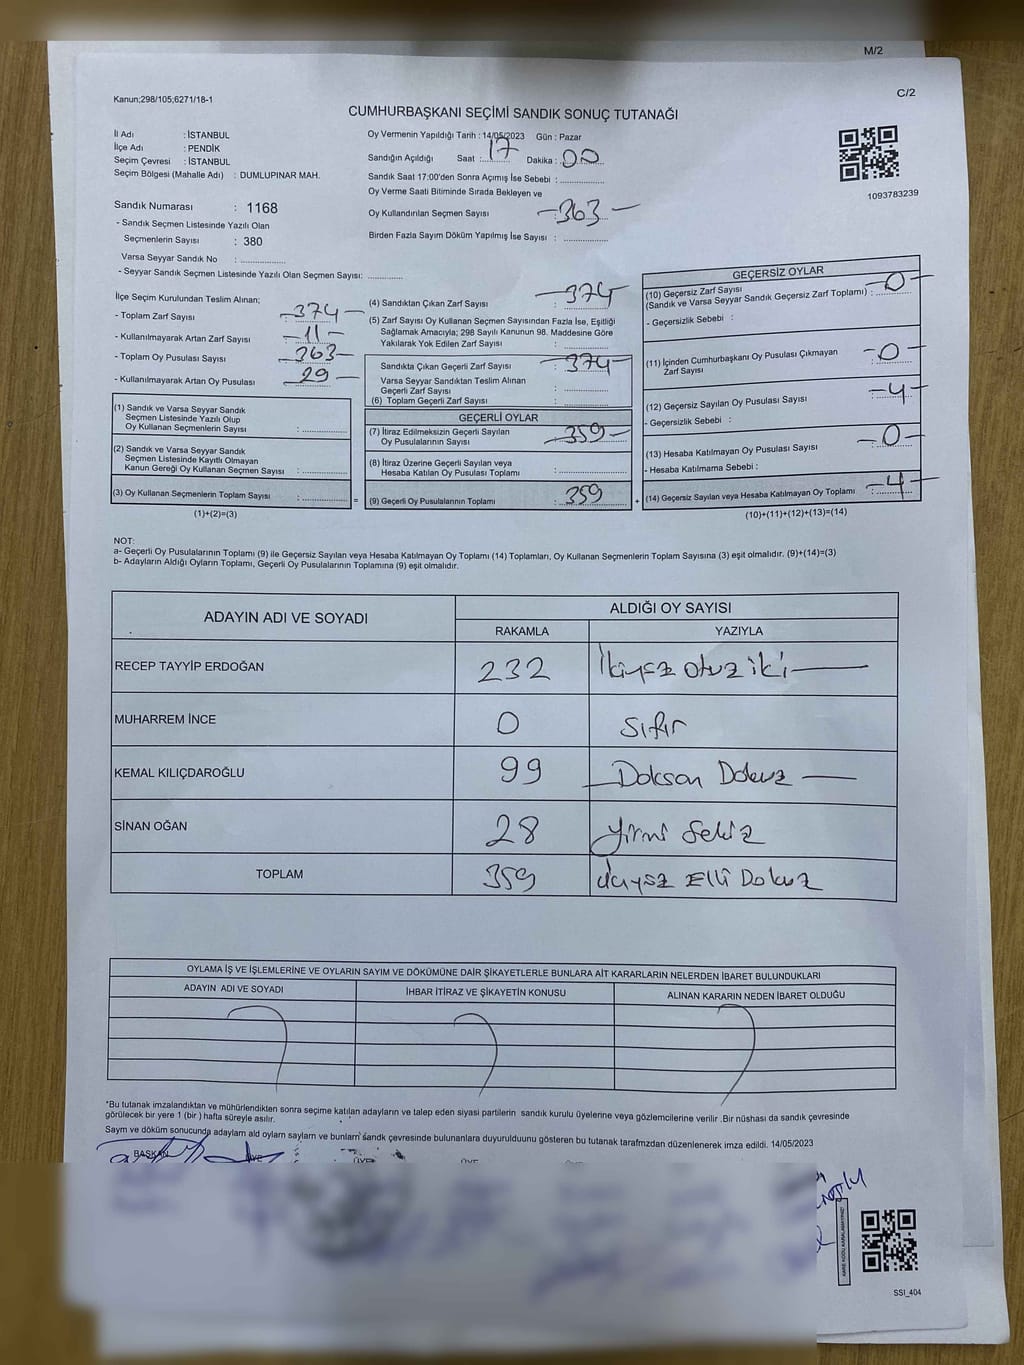 M/2
C/2
Kanun;298/105;6271/18-1
CUMHURBAŞKANI SEÇİMİ SANDIK SONUÇ TUTANAĞI
İl Adı : İSTANBUL
İlçe Adı : PENDİK
Seçim Çevresi : İSTANBUL
Seçim Bölgesi (Mahalle Adı) : DUMLUPINAR MAH.
Sandık Numarası : 1168
- Sandık Seçmen Listesinde Yazılı Olan
Seçmenlerin Sayısı : 380
Varsa Seyyar Sandık No :
- Seyyar Sandık Seçmen Listesinde Yazılı Olan Seçmen Sayısı:
Oy Vermenin Yapıldığı Tarih : 14/05/2023 Gün : Pazar
Sandığın Açıldığı Saat : 17 Dakika : 00
Sandık Saat 17:00'den Sonra Açımış İse Sebebi :
Oy Verme Saati Bitiminde Sırada Bekleyen ve
Oy Kullandırılan Seçmen Sayısı : 363
Birden Fazla Sayım Döküm Yapılmış İse Sayısı :
1093783239
İlçe Seçim Kurulundan Teslim Alınan;
- Toplam Zarf Sayısı : 374
- Kullanılmayarak Artan Zarf Sayısı : 11
- Toplam Oy Pusulası Sayısı : 363
- Kullanılmayarak Artan Oy Pusulası : 29
(1) Sandık ve Varsa Seyyar Sandık
Seçmen Listesinde Yazılı Olup
Oy Kullanan Seçmenlerin Sayısı :
(2) Sandık ve Varsa Seyyar Sandık
Seçmen Listesinde Kayıtlı Olmayan
Kanun Gereği Oy Kullanan Seçmen Sayısı :
(3) Oy Kullanan Seçmenlerin Toplam Sayısı : =
(1)+(2)=(3)
(4) Sandıktan Çıkan Zarf Sayısı : 374
(5) Zarf Sayısı Oy Kullanan Seçmen Sayısından Fazla İse, Eşitliği
Sağlamak Amacıyla; 298 Sayılı Kanunun 98. Maddesine Göre
Yakılarak Yok Edilen Zarf Sayısı :
Sandıkta Çıkan Geçerli Zarf Sayısı : 374
Varsa Seyyar Sandıktan Teslim Alınan
Geçerli Zarf Sayısı :
(6) Toplam Geçerli Zarf Sayısı :
GEÇERLİ OYLAR
(7) İtiraz Edilmeksizin Geçerli Sayılan
Oy Pusulalarının Sayısı : 359
(8) İtiraz Üzerine Geçerli Sayılan veya
Hesaba Katılan Oy Pusulası Toplamı :
(9) Geçerli Oy Pusulalarının Toplamı : 359 +
GEÇERSİZ OYLAR
(10) Geçersiz Zarf Sayısı
(Sandık ve Varsa Seyyar Sandık Geçersiz Zarf Toplamı) : 0
- Geçersizlik Sebebi :
(11) İçinden Cumhurbaşkanı Oy Pusulası Çıkmayan
Zarf Sayısı : 0
(12) Geçersiz Sayılan Oy Pusulası Sayısı : 4
- Geçersizlik Sebebi :
(13) Hesaba Katılmayan Oy Pusulası Sayısı : 0
- Hesaba Katılmama Sebebi :
(14) Geçersiz Sayılan veya Hesaba Katılmayan Oy Toplamı : 4
(10)+(11)+(12)+(13)=(14)
NOT:
a- Geçerli Oy Pusulalarının Toplamı (9) ile Geçersiz Sayılan veya Hesaba Katılmayan Oy Toplamı (14) Toplamları, Oy Kullanan Seçmenlerin Toplam Sayısına (3) eşit olmalıdır. (9)+(14)=(3)
b- Adayların Aldığı Oyların Toplamı, Geçerli Oy Pusulalarının Toplamına (9) eşit olmalıdır.
ADAYIN ADI VE SOYADI
ALDIĞI OY SAYISI
RAKAMLA YAZIYLA
RECEP TAYYİP ERDOĞAN 232 İkiyüz otuz iki
MUHARREM İNCE 0 Sıfır
KEMAL KILIÇDAROĞLU 99 Doksan Dokuz
SİNAN OĞAN 28 Yirmi Sekiz
TOPLAM 359 üçyüz Elli Dokuz
OYLAMA İŞ VE İŞLEMLERİNE VE OYLARIN SAYIM VE DÖKÜMÜNE DAİR ŞİKAYETLERLE BUNLARA AİT KARARLARIN NELERDEN İBARET BULUNDUKLARI
ADAYIN ADI VE SOYADI İHBAR İTİRAZ VE ŞİKAYETİN KONUSU ALINAN KARARIN NEDEN İBARET OLDUĞU
*Bu tutanak imzalandıktan ve mühürlendikten sonra seçime katılan adayların ve talep eden siyasi partilerin sandık kurulu üyelerine veya gözlemcilerine verilir .Bir nüshası da sandık çevresinde
görülecek bir yere 1 (bir ) hafta süreyle asılır.
Saym ve döküm sonucunda adaylarn ald oylarn saylarn ve bunlarn sandk çevresinde bulunanlara duyurulduunu gösteren bu tutanak tarafmzdan düzenlenerek imza edildi. 14/05/2023
BAŞKAN ÜYE ÜYE ÜYE ÜYE
SSI_404